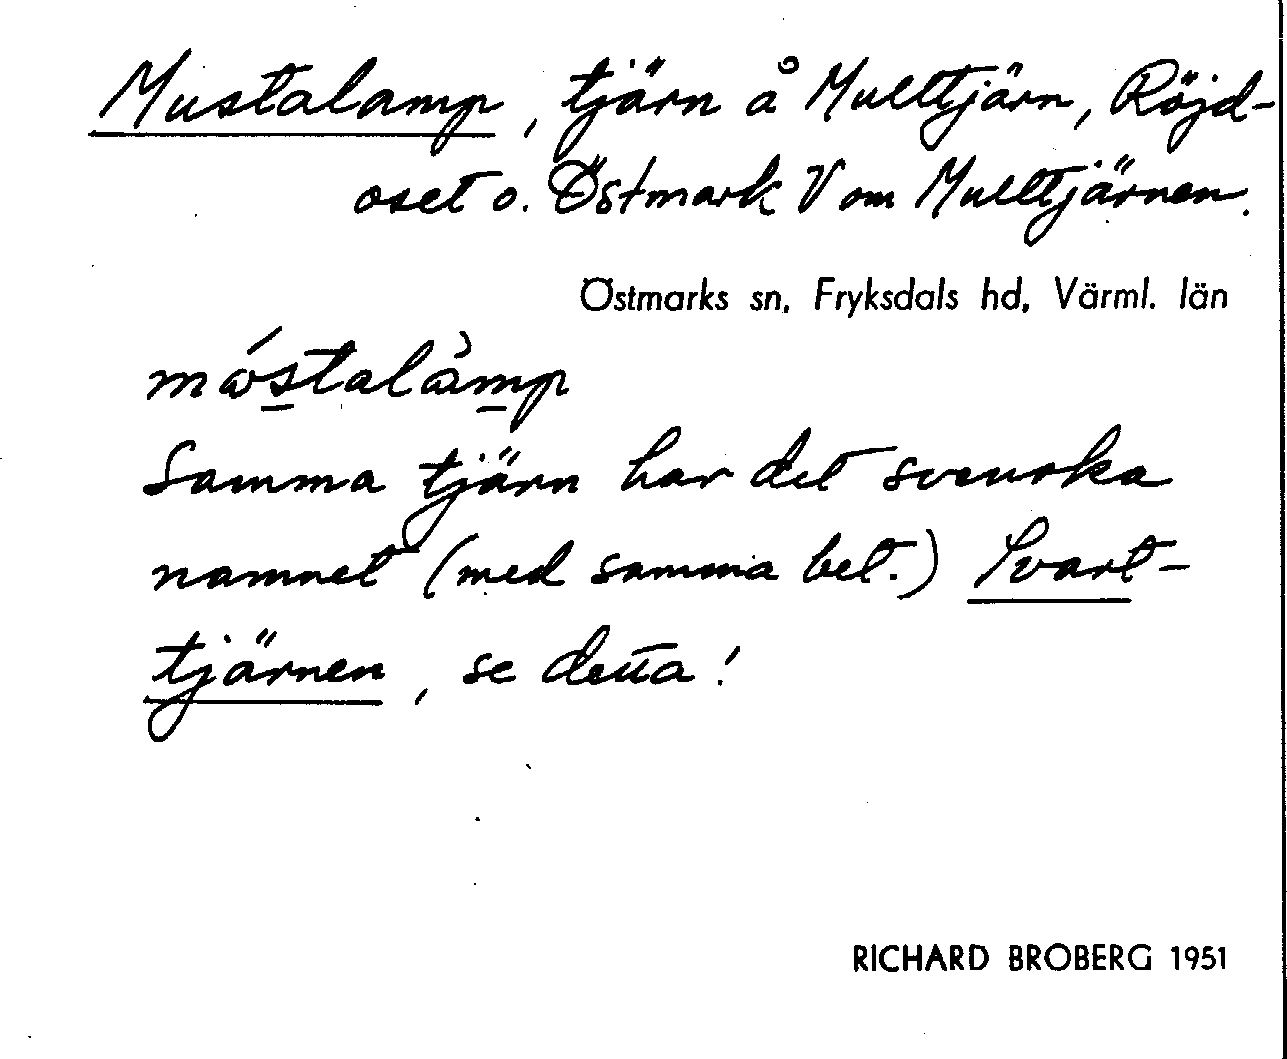 Mustalamp, tjärn å Multtjärn, Röjd-
oset o. Östmark V om Multtjärnen.
Östmarks sn, Fryksdals hd, Värml. län
mós̲talàm̲p
Samma tjärn har det svenska
namnet (med samma bet.) Svart-
tjärnen, se detta!
RICHARD BROBERG 1951